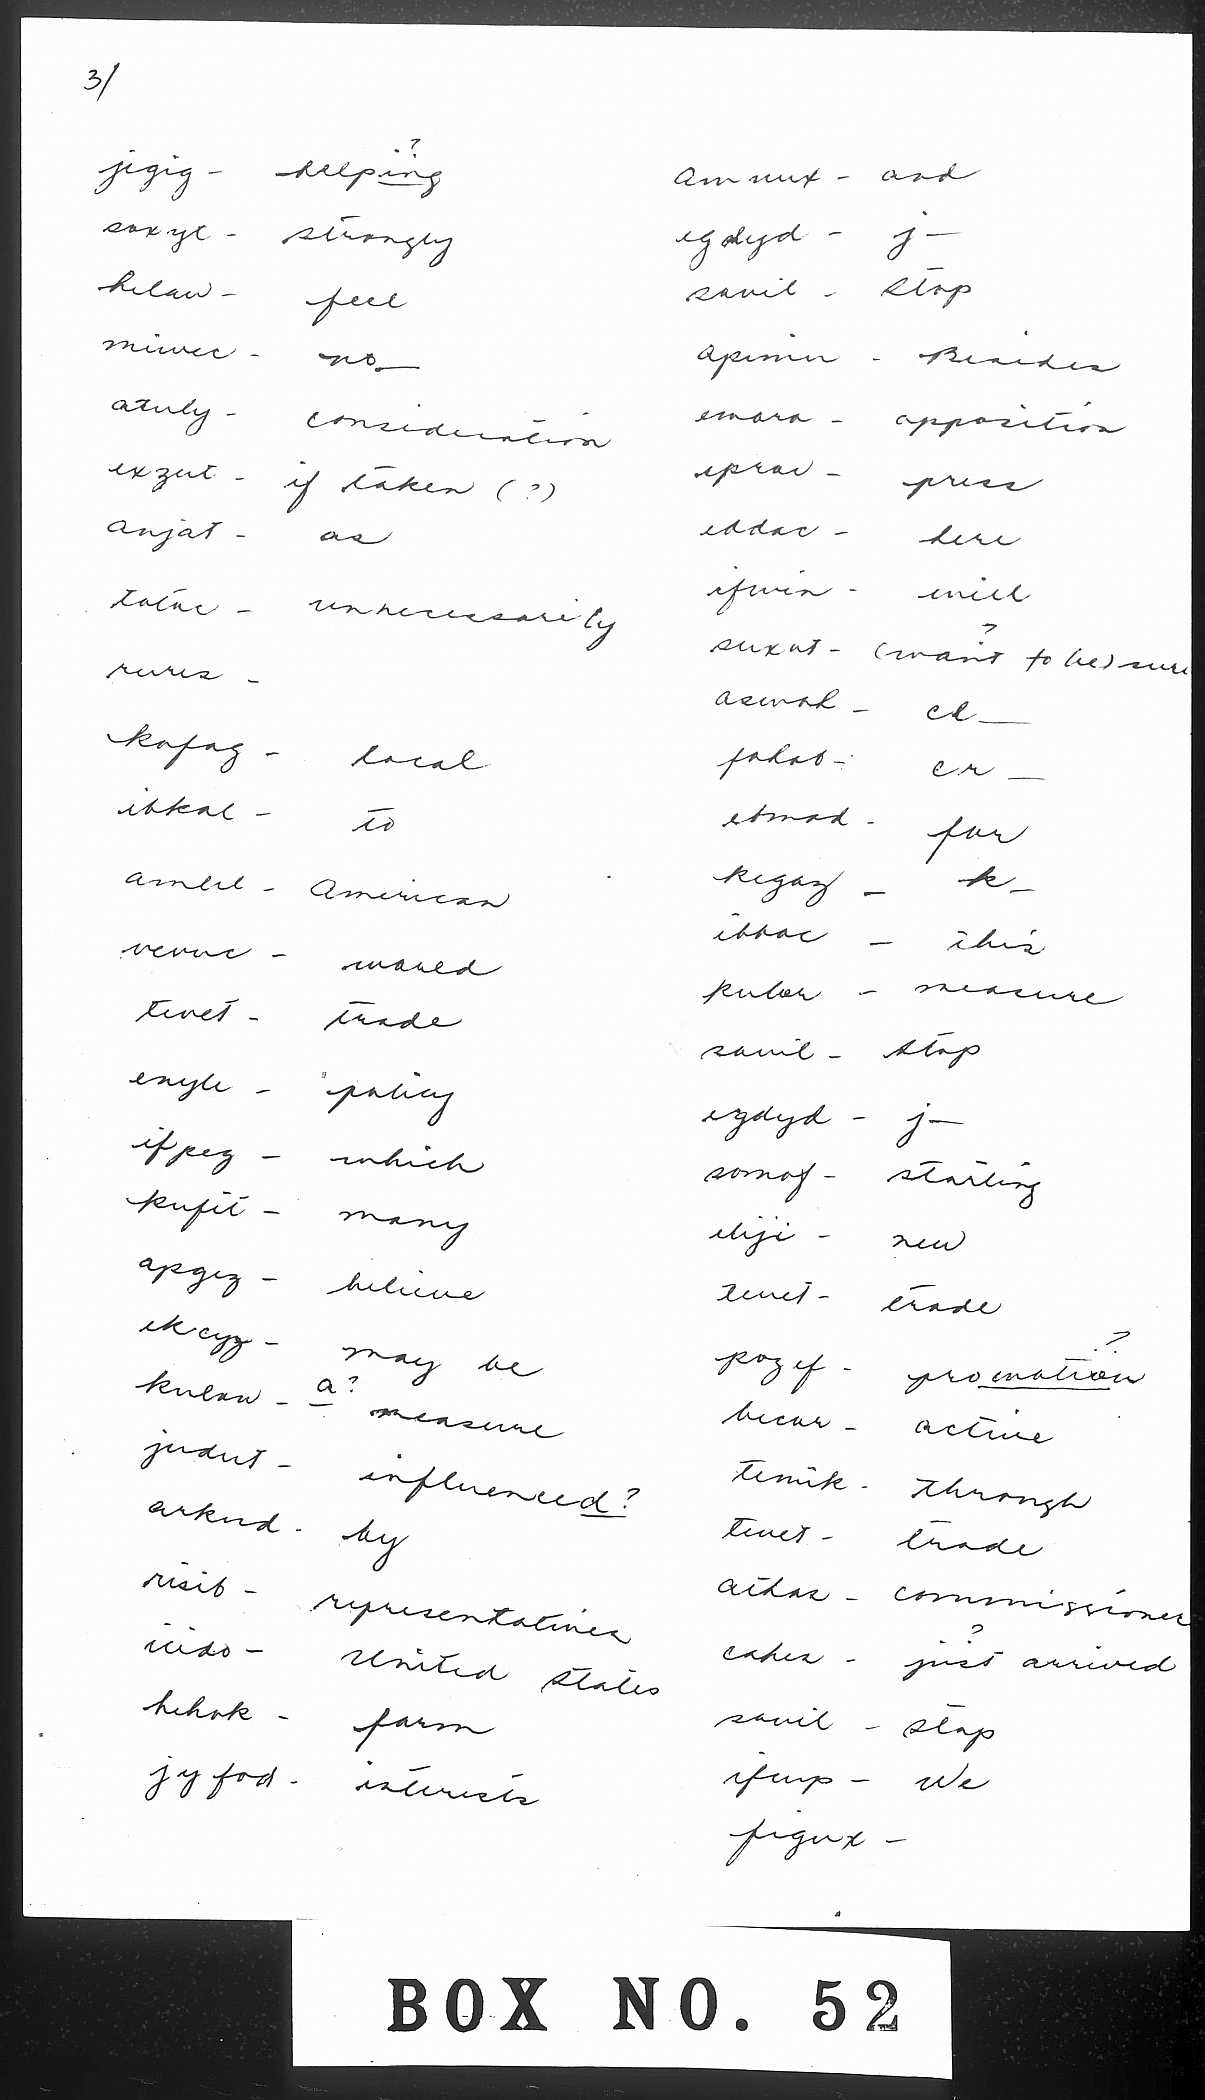 3/
jigig - helping ?
soxyl - strongly
helaw - feel
miwec - no_
atuly - consideration
exzut - if taken (?)
anjat - as
tatuc - unnecessarily
rures -
kofag - local
ibkal - to
amlel - American
vevuc - waved
tevet - trade
enyle - policy
ifpeg - which
kufit - many
apgez - believe
ekcyz - may be
kulaw - a? measure
judut - influenced?
arknd - by
risib - representatives
iiido - United States
hehok - farm
jyfod - interests
amnux - and
egdyd - j—
sovil - Stop
apimin - Besides
emora - opposition
eprov - press
eddac - here
ifwin - will
suxut - (want ? to be) sure
aswah - cl—
fohob - cr—
ebmad - for
kegaz - k—
ibbac - this
kuler - measure
sovil - stop
egdyd - j—
somof - starting
eliji - new
tevet - trade
pozef - promotion ?
becar - active
temik - through
tevet - trade
athas - commissioner
cahes - just ? arrived
sovil - stop
ifwup - We
figux -
BOX NO. 52